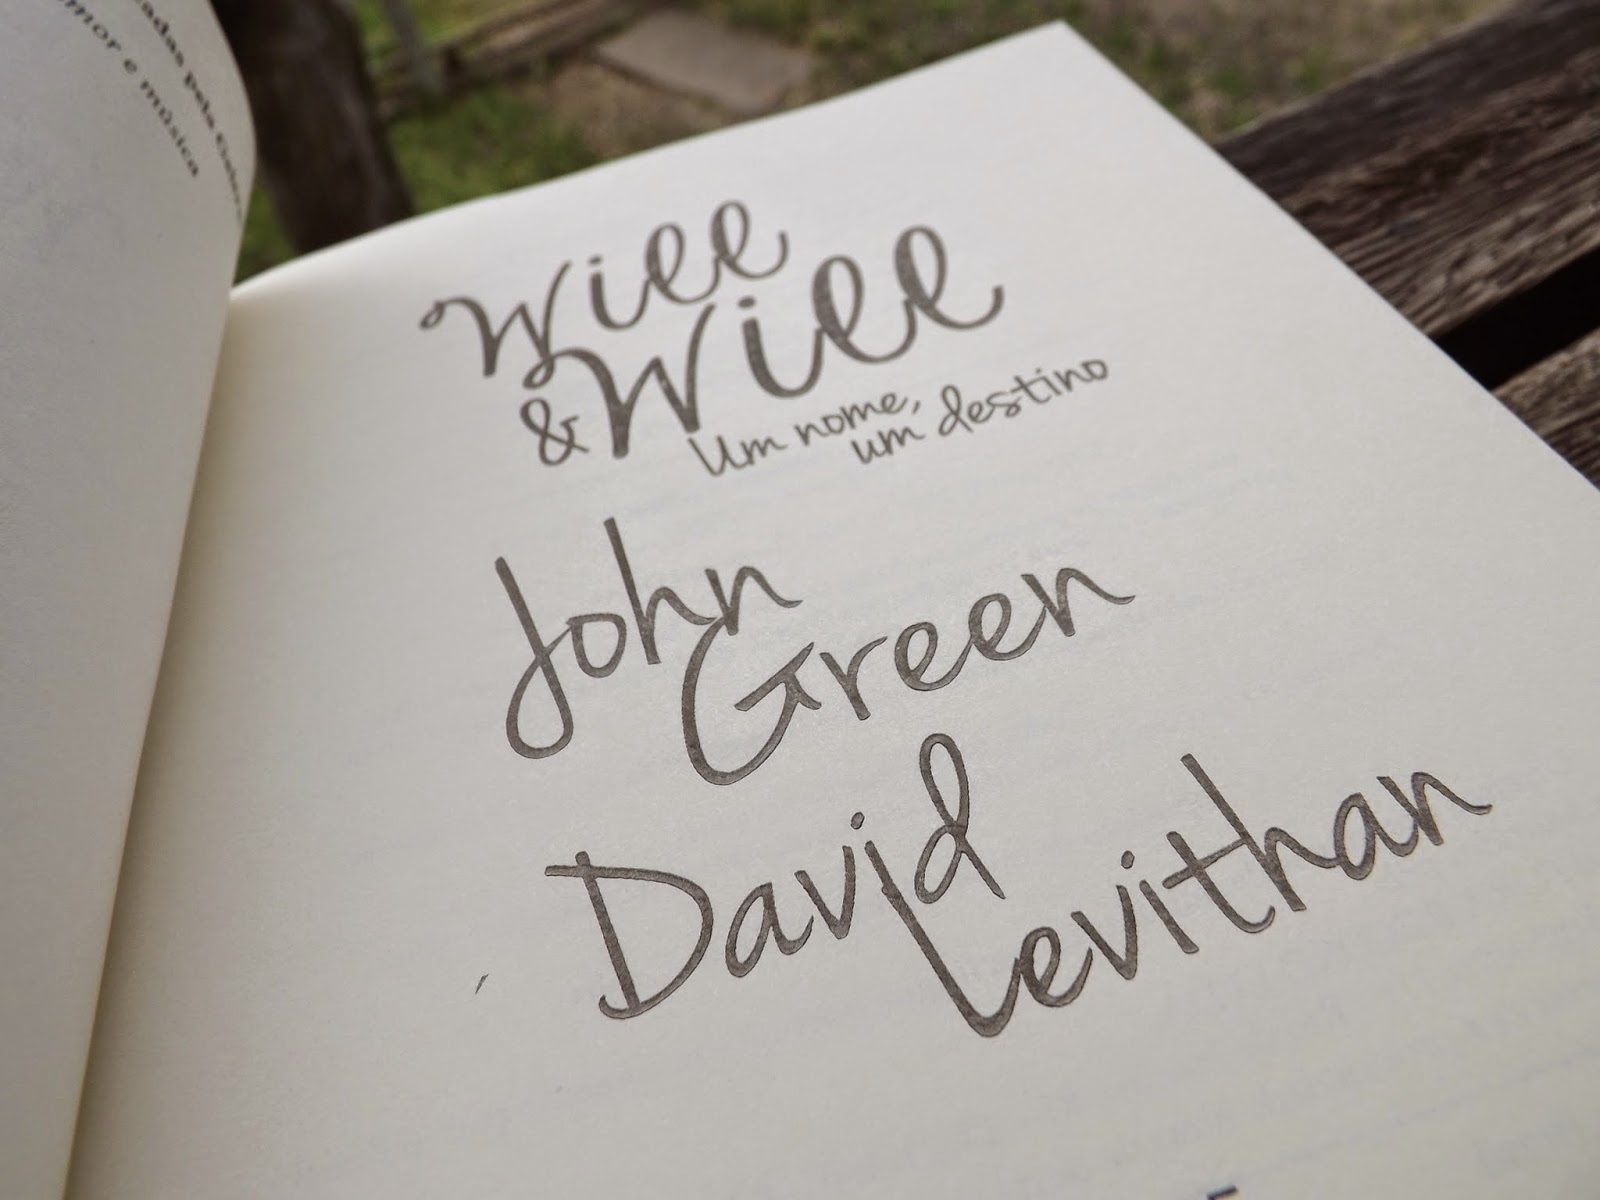 adas pela Galera
mor e música
Will
& Will
Um nome,
um destino
John
Green
David
Levithan